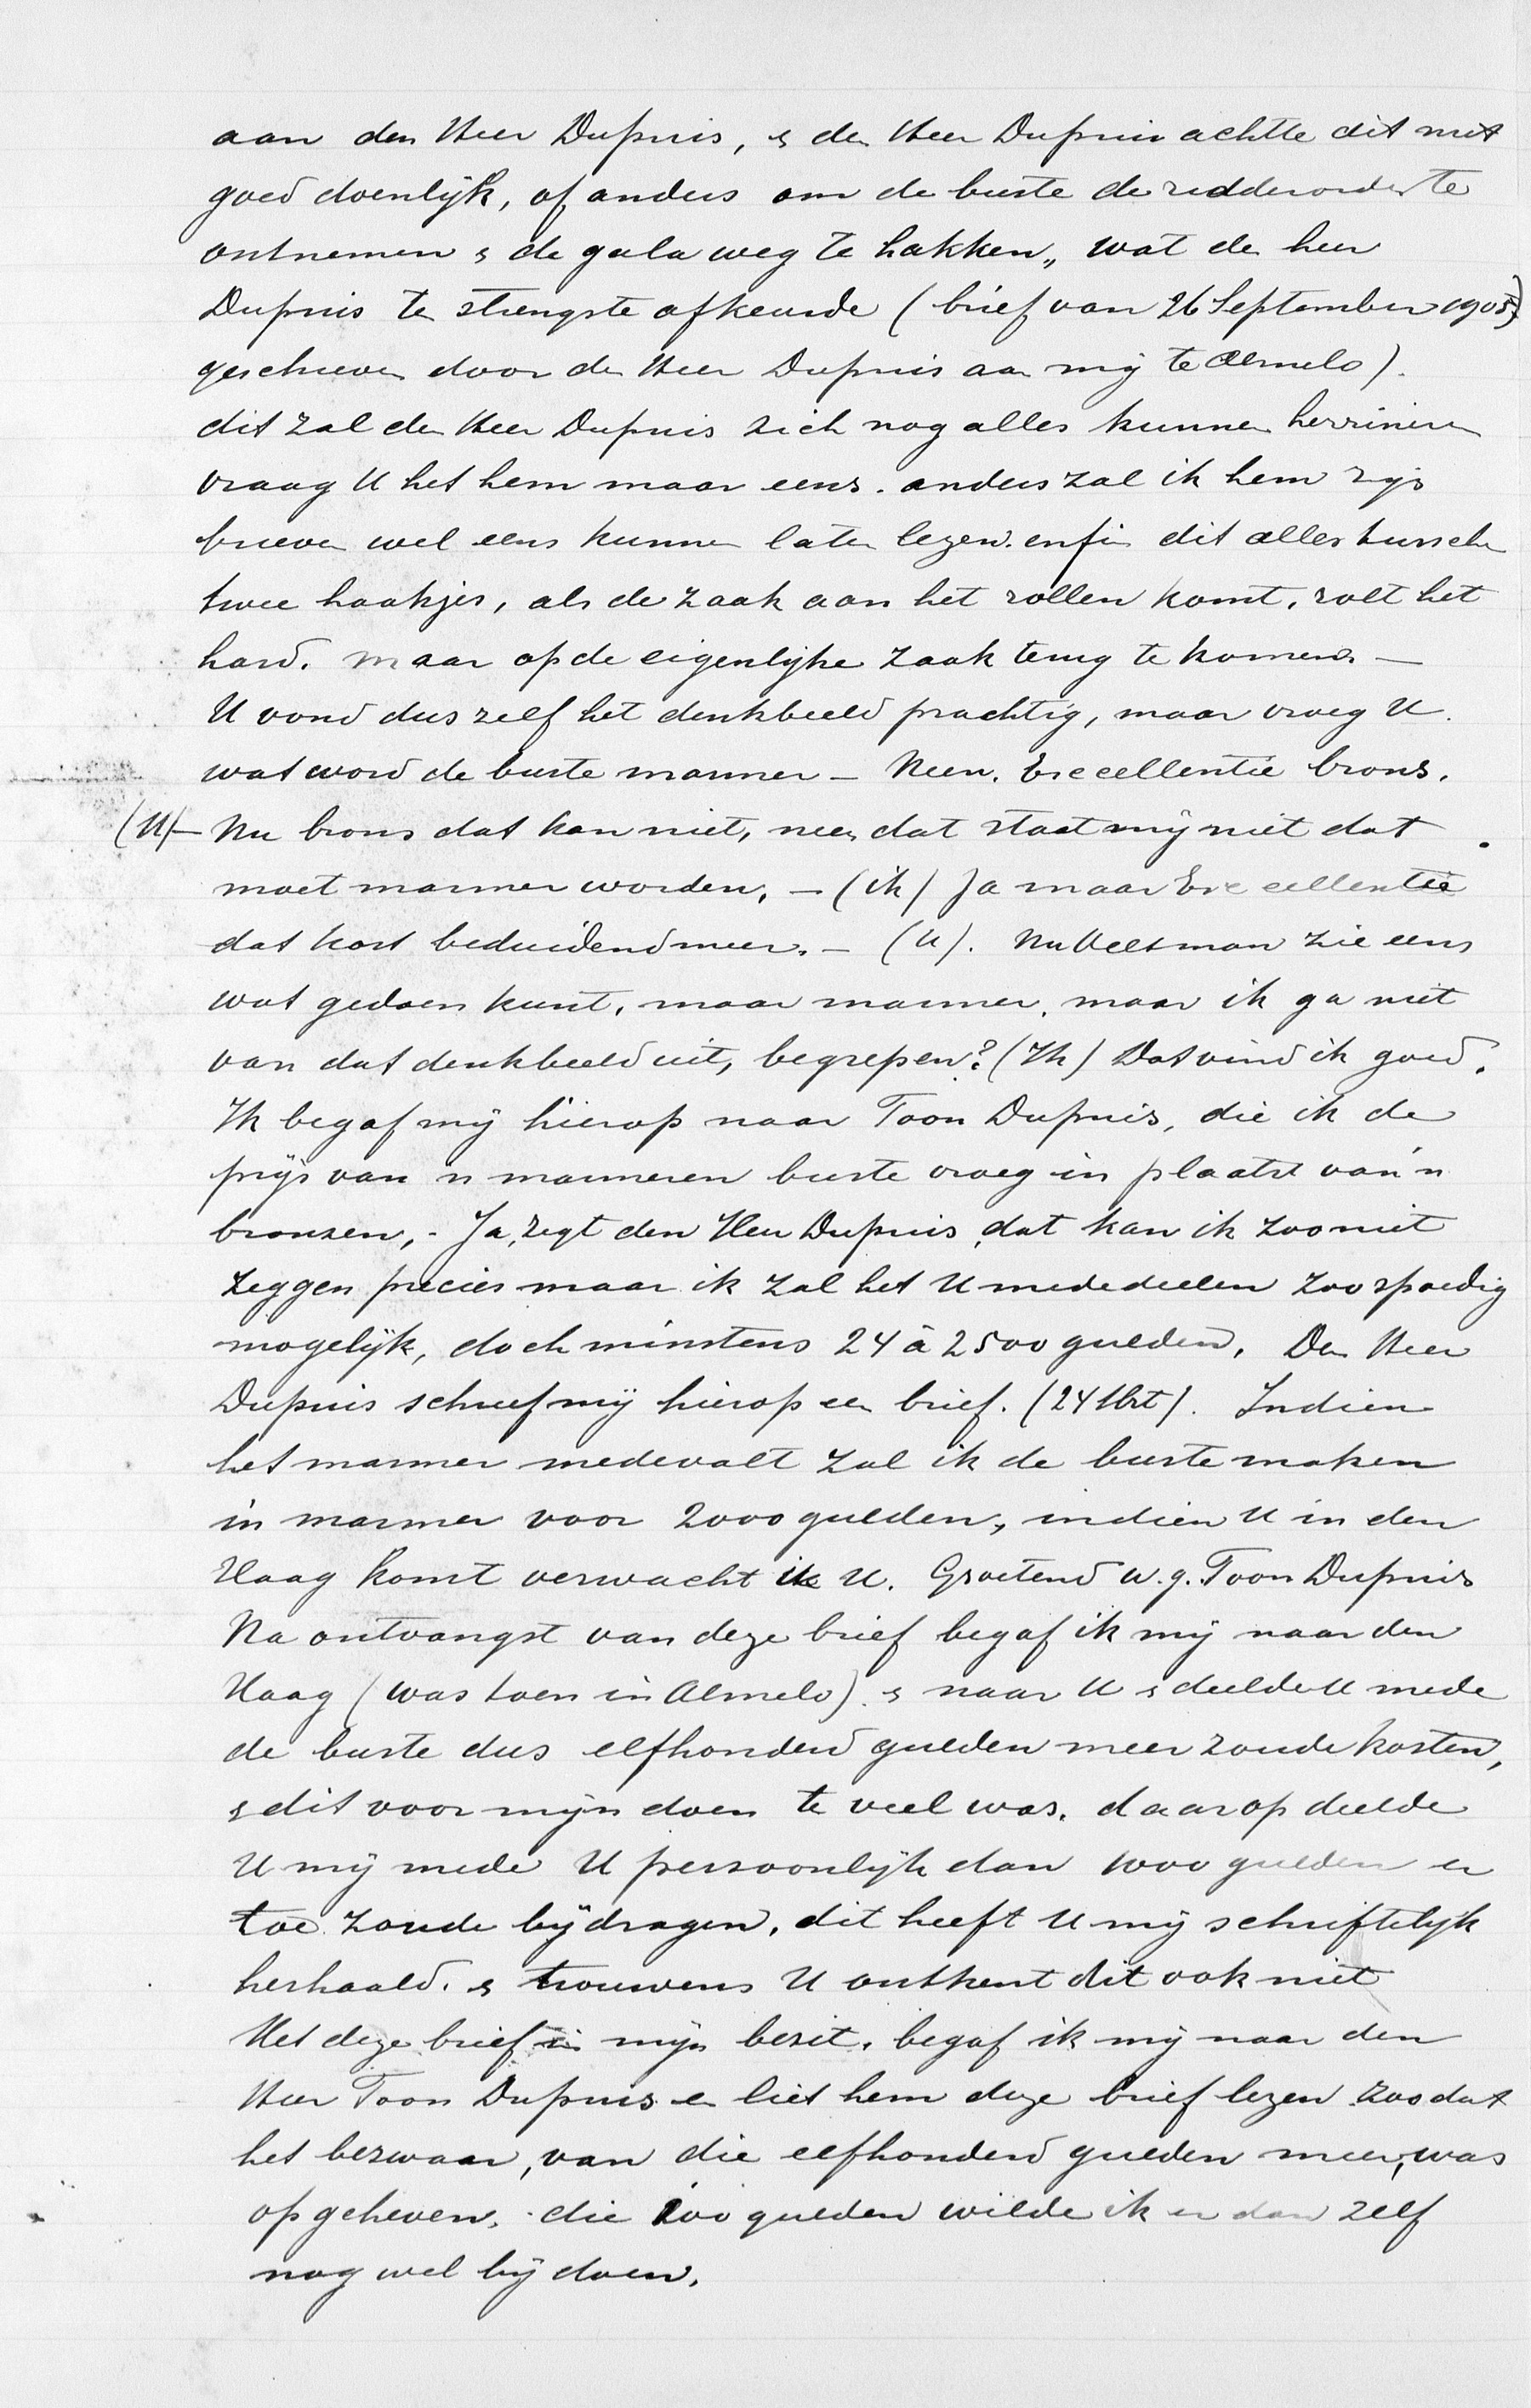 aan den Heer Dupuis, & den Heer Dupuis achtte dit niet
goed doenlijk, of anders om de buste de ridderorder te
ontnemen & de gala weg te hakken,, wat den heer
Dupuis ten strengste afkeurde (brief van 26 September 1905)
geschreven door den Heer Dupuis aan mij te Almelo).
dit zal den Heer Dupuis zich nog alles kunnen herrineren
vraag U het hem maar eens. anders zal ik hem zijn
brieven wel eens kunnen laten lezen. enfin dit alles tusschen
twee haakjes, als de zaak aan het rollen komt, rolt het
hard. maar op de eigenlijke zaak terug te komen. —
U vond dus zelf het denkbeeld prachtig, maar vroeg U.
wat word de buste marmer — Neen. Excellentie brons.
(U) — Nu brons dat kan niet, neen dat staat mij niet dat
moet marmer worden. — (ik) Ja maar Excellentie
dat kost beduidend meer. — (U). Nu Veltman zie eens
wat gedaen kunt, maar marmer, maar ik ga niet
van dat denkbeeld uit, begrepen? (Ik) Dat vind ik goed.
Ik begaf mij hierop naar Toon Dupuis, die ik de
prijs van 'n marmeren buste vroeg in plaatst van 'n
bronzen, - Ja, zegt den Heer Dupuis, dat kan ik zoo niet
zeggen precies maar ik zal het U mededeelen zoo spoedig
mogelijk, doch minstens 24 à 2500 gulden. Den Heer
Dupuis schreef mij hierop een brief. (24 Oct). Indien
het marmer medevalt zal ik de buste maken
in marmer voor 2000 gulden, indien U in den
Haag komt verwacht ik U. Groetend w.g. Toon Dupuis
Na ontvangst van deze brief begaf ik mij naar den
Haag (was toen in Almelo). & naar U & deelde U mede
de buste dus elfhonderd gulden meer zoude kosten,
& dit voor mijn doen te veel was. daarop deelde
U mij mede U persoonlijk dan 1000 gulden er
toe zoude bijdragen. dit heeft U mij schriftelijk
herhaald. & trouwens U ontkent dit ook niet
Met deze brief in mijn bezit. begaf ik mij naar den
Heer Toon Dupuis en liet hem deze brief lezen zoodat
het bezwaar, van die elfhonderd gulden meer, was
opgeheven. die 100 gulden wilde ik er dan zelf
nog wel bij doen.